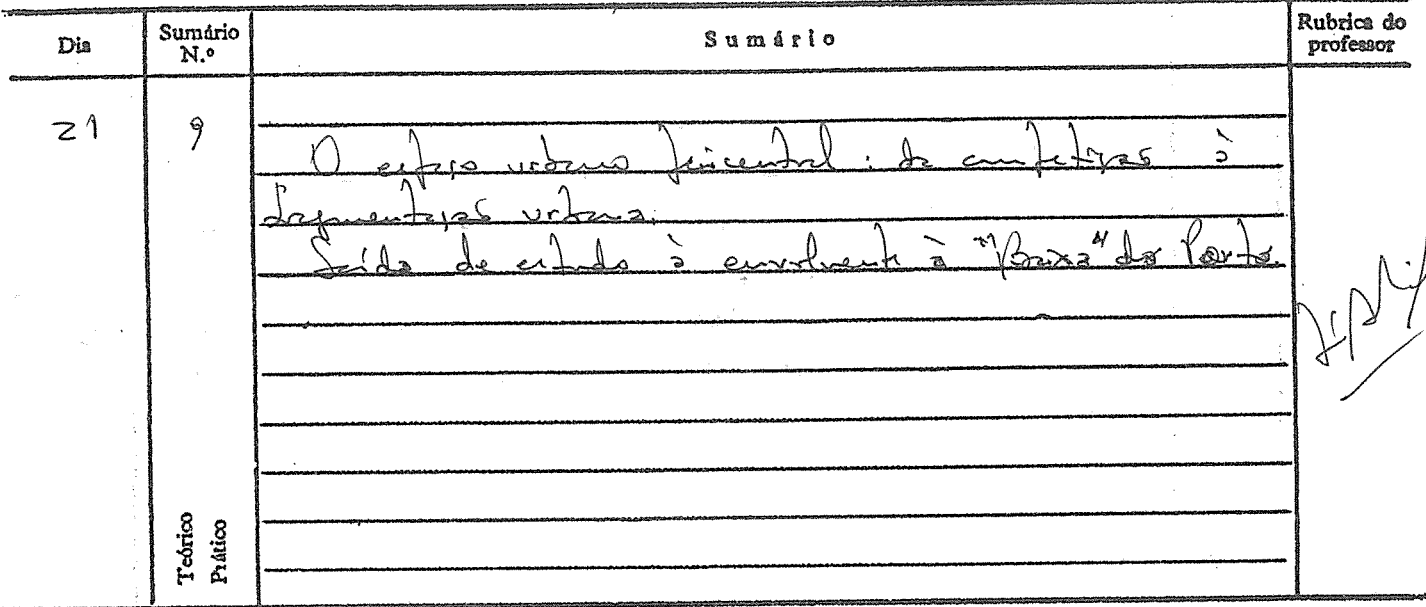 Dia
Sumário N.º
Sumário
Rubrica do professor
21
9
O espaço urbano pericentral: da competição à
fragmentação urbana.
Saída de estudo à envolvente à "Baixa" do Porto.
Teórico
Prático